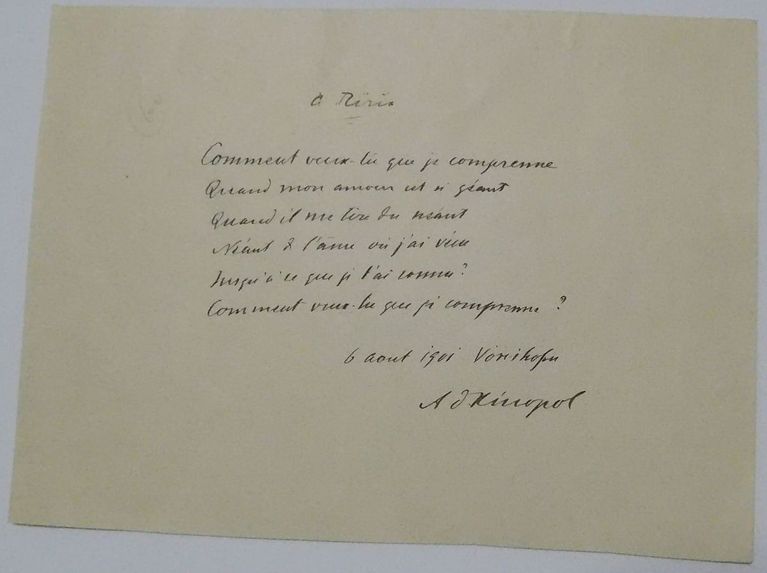 à Riria
Comment veux-tu que je comprenne
Quand mon amour est si géant
Quand il me tire du néant
Néant de l'âme où j'ai vécu
Jusqu'à ce que je t'ai connu?
Comment veux-tu que je comprenne?
6 aout 1901 Vörishofen
A d Xénopol